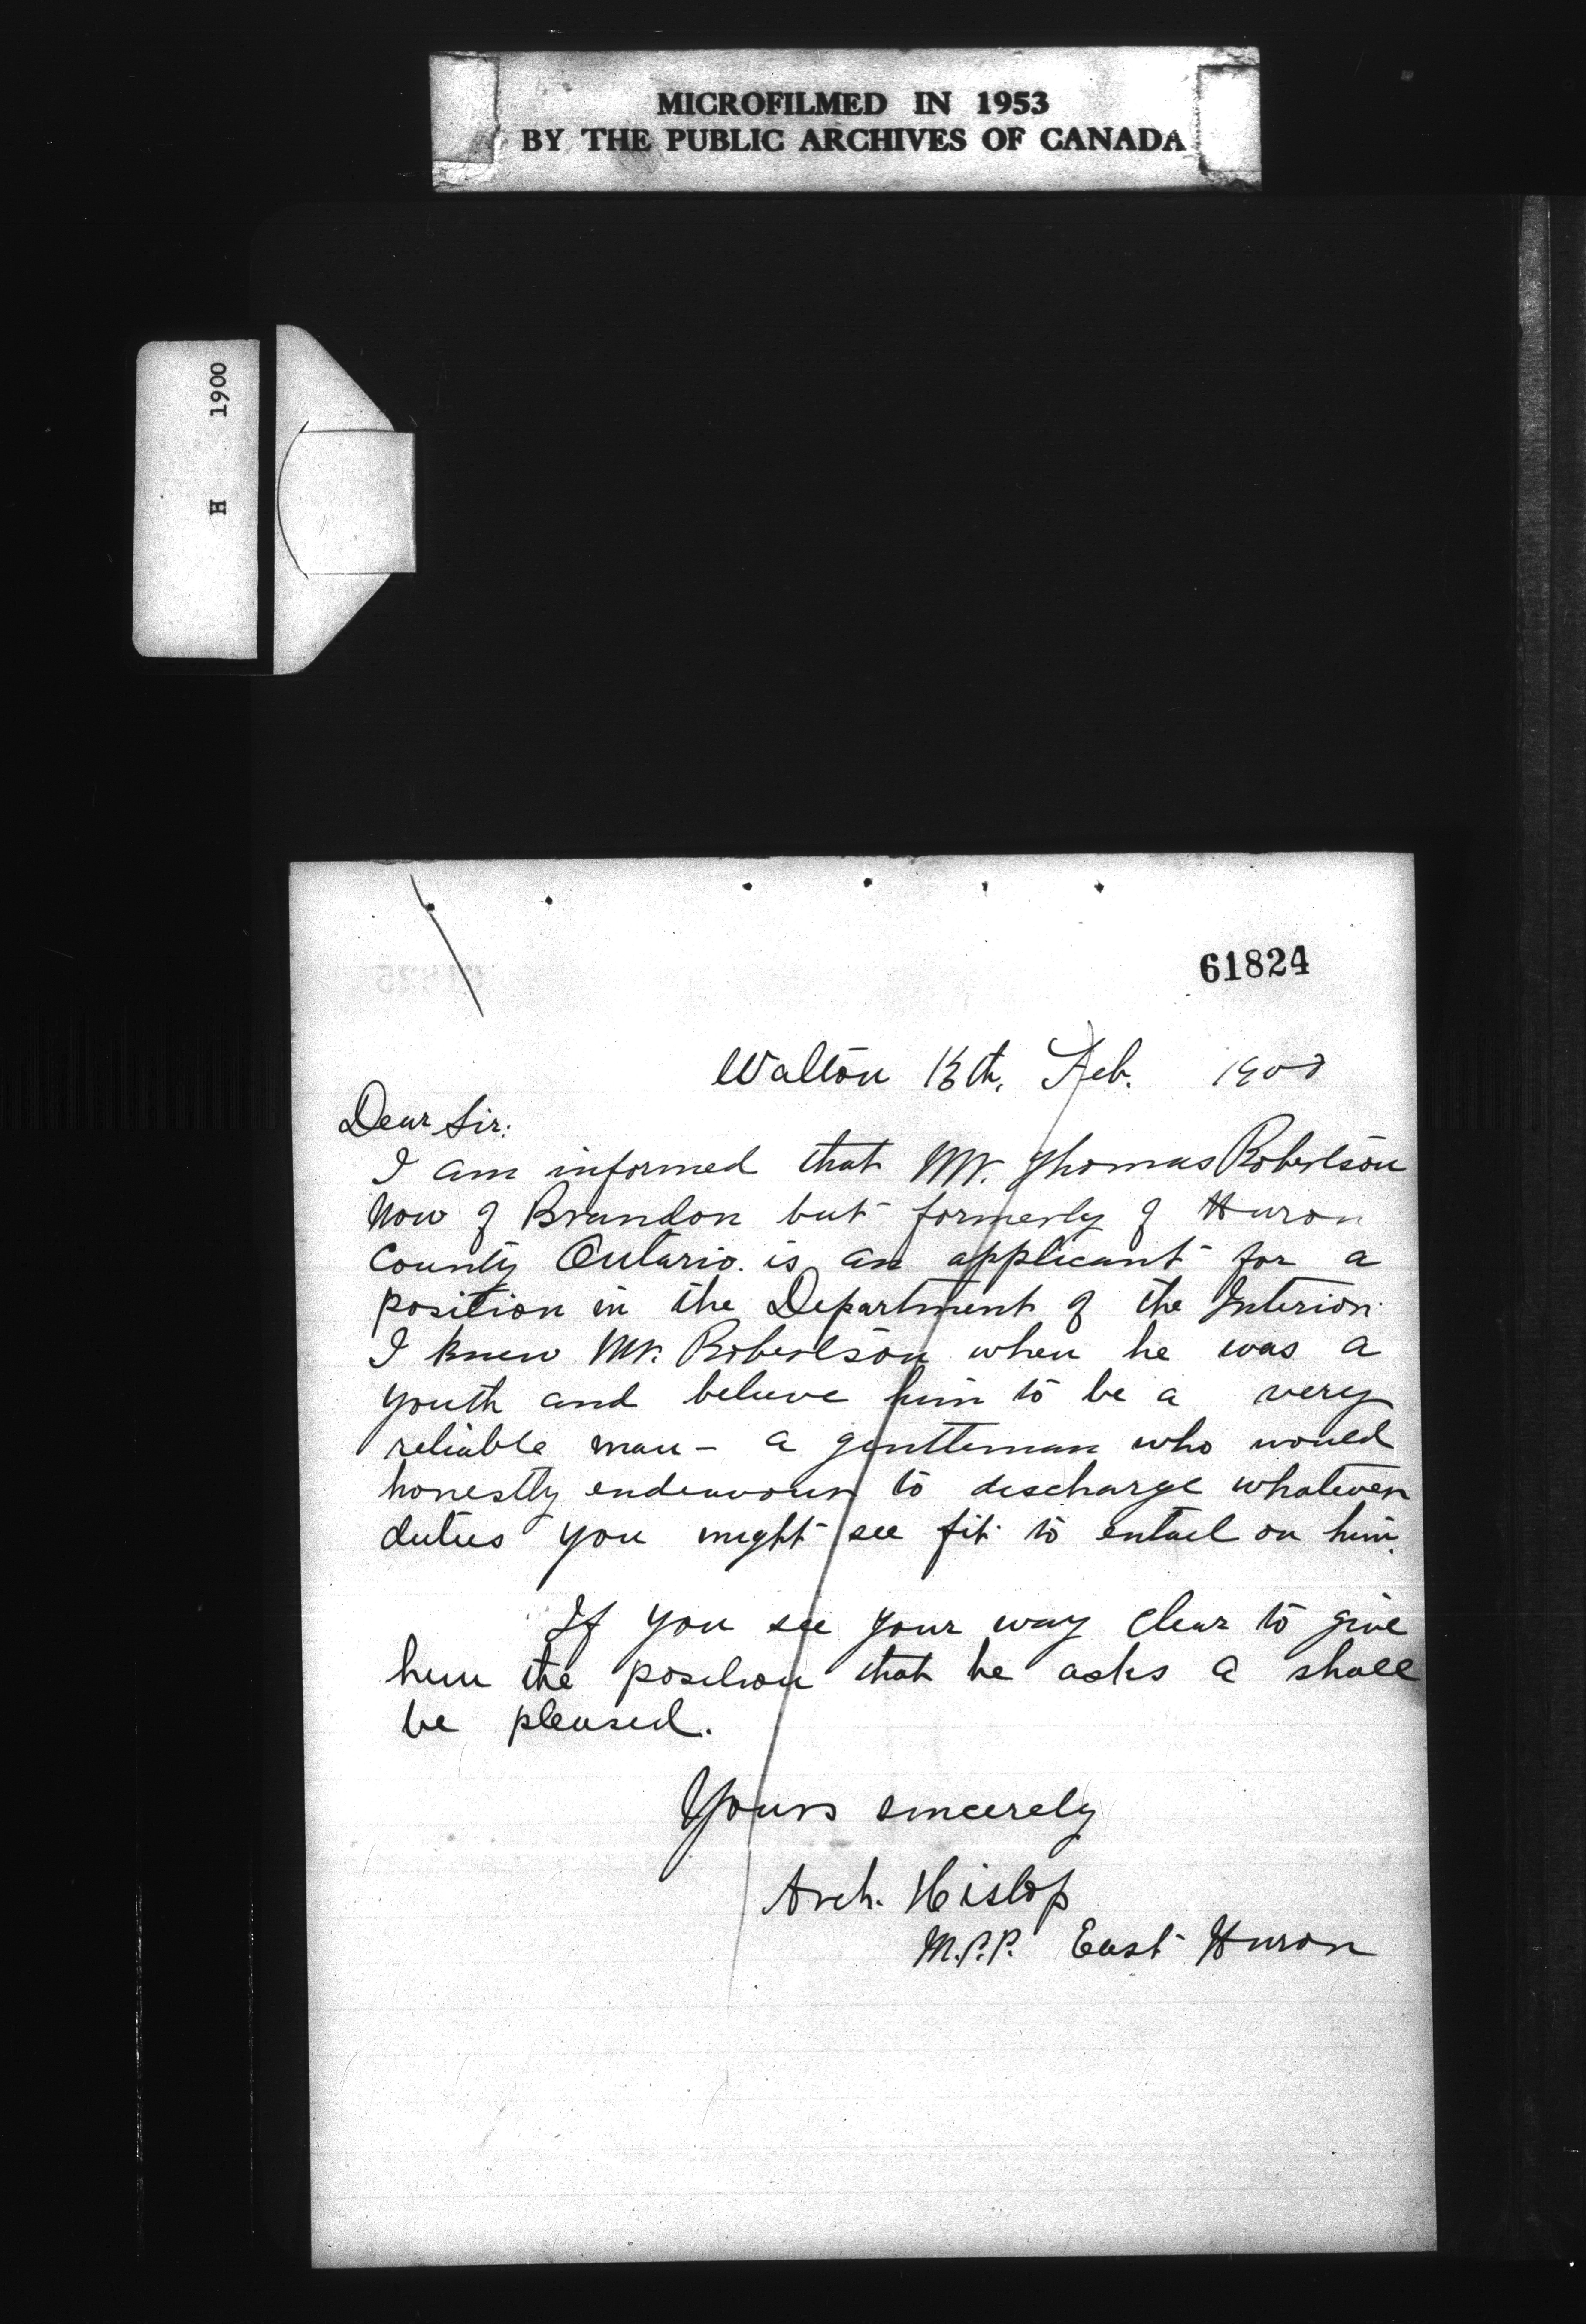 MICROFILMED IN 1953
BY THE PUBLIC ARCHIVES OF CANADA
H 1900
61824
Walton 13th, Feb. 1900
Dear Sir:
I am informed that Mr. Thomas Robertson
now of Brandon but formerly of Huron
County Ontario. is an applicant for a
position in the Department of the Interior.
I knew Mr. Robertson when he was a
youth and believe him to be a very
reliable man - a gentleman who would
honestly endeavour to discharge whatever
duties you might see fit to entail on him.
If you see your way clear to give
him the position that he asks a shall
be pleased.
Yours sincerely
Arch. Hislop
M.P.P. East Huron